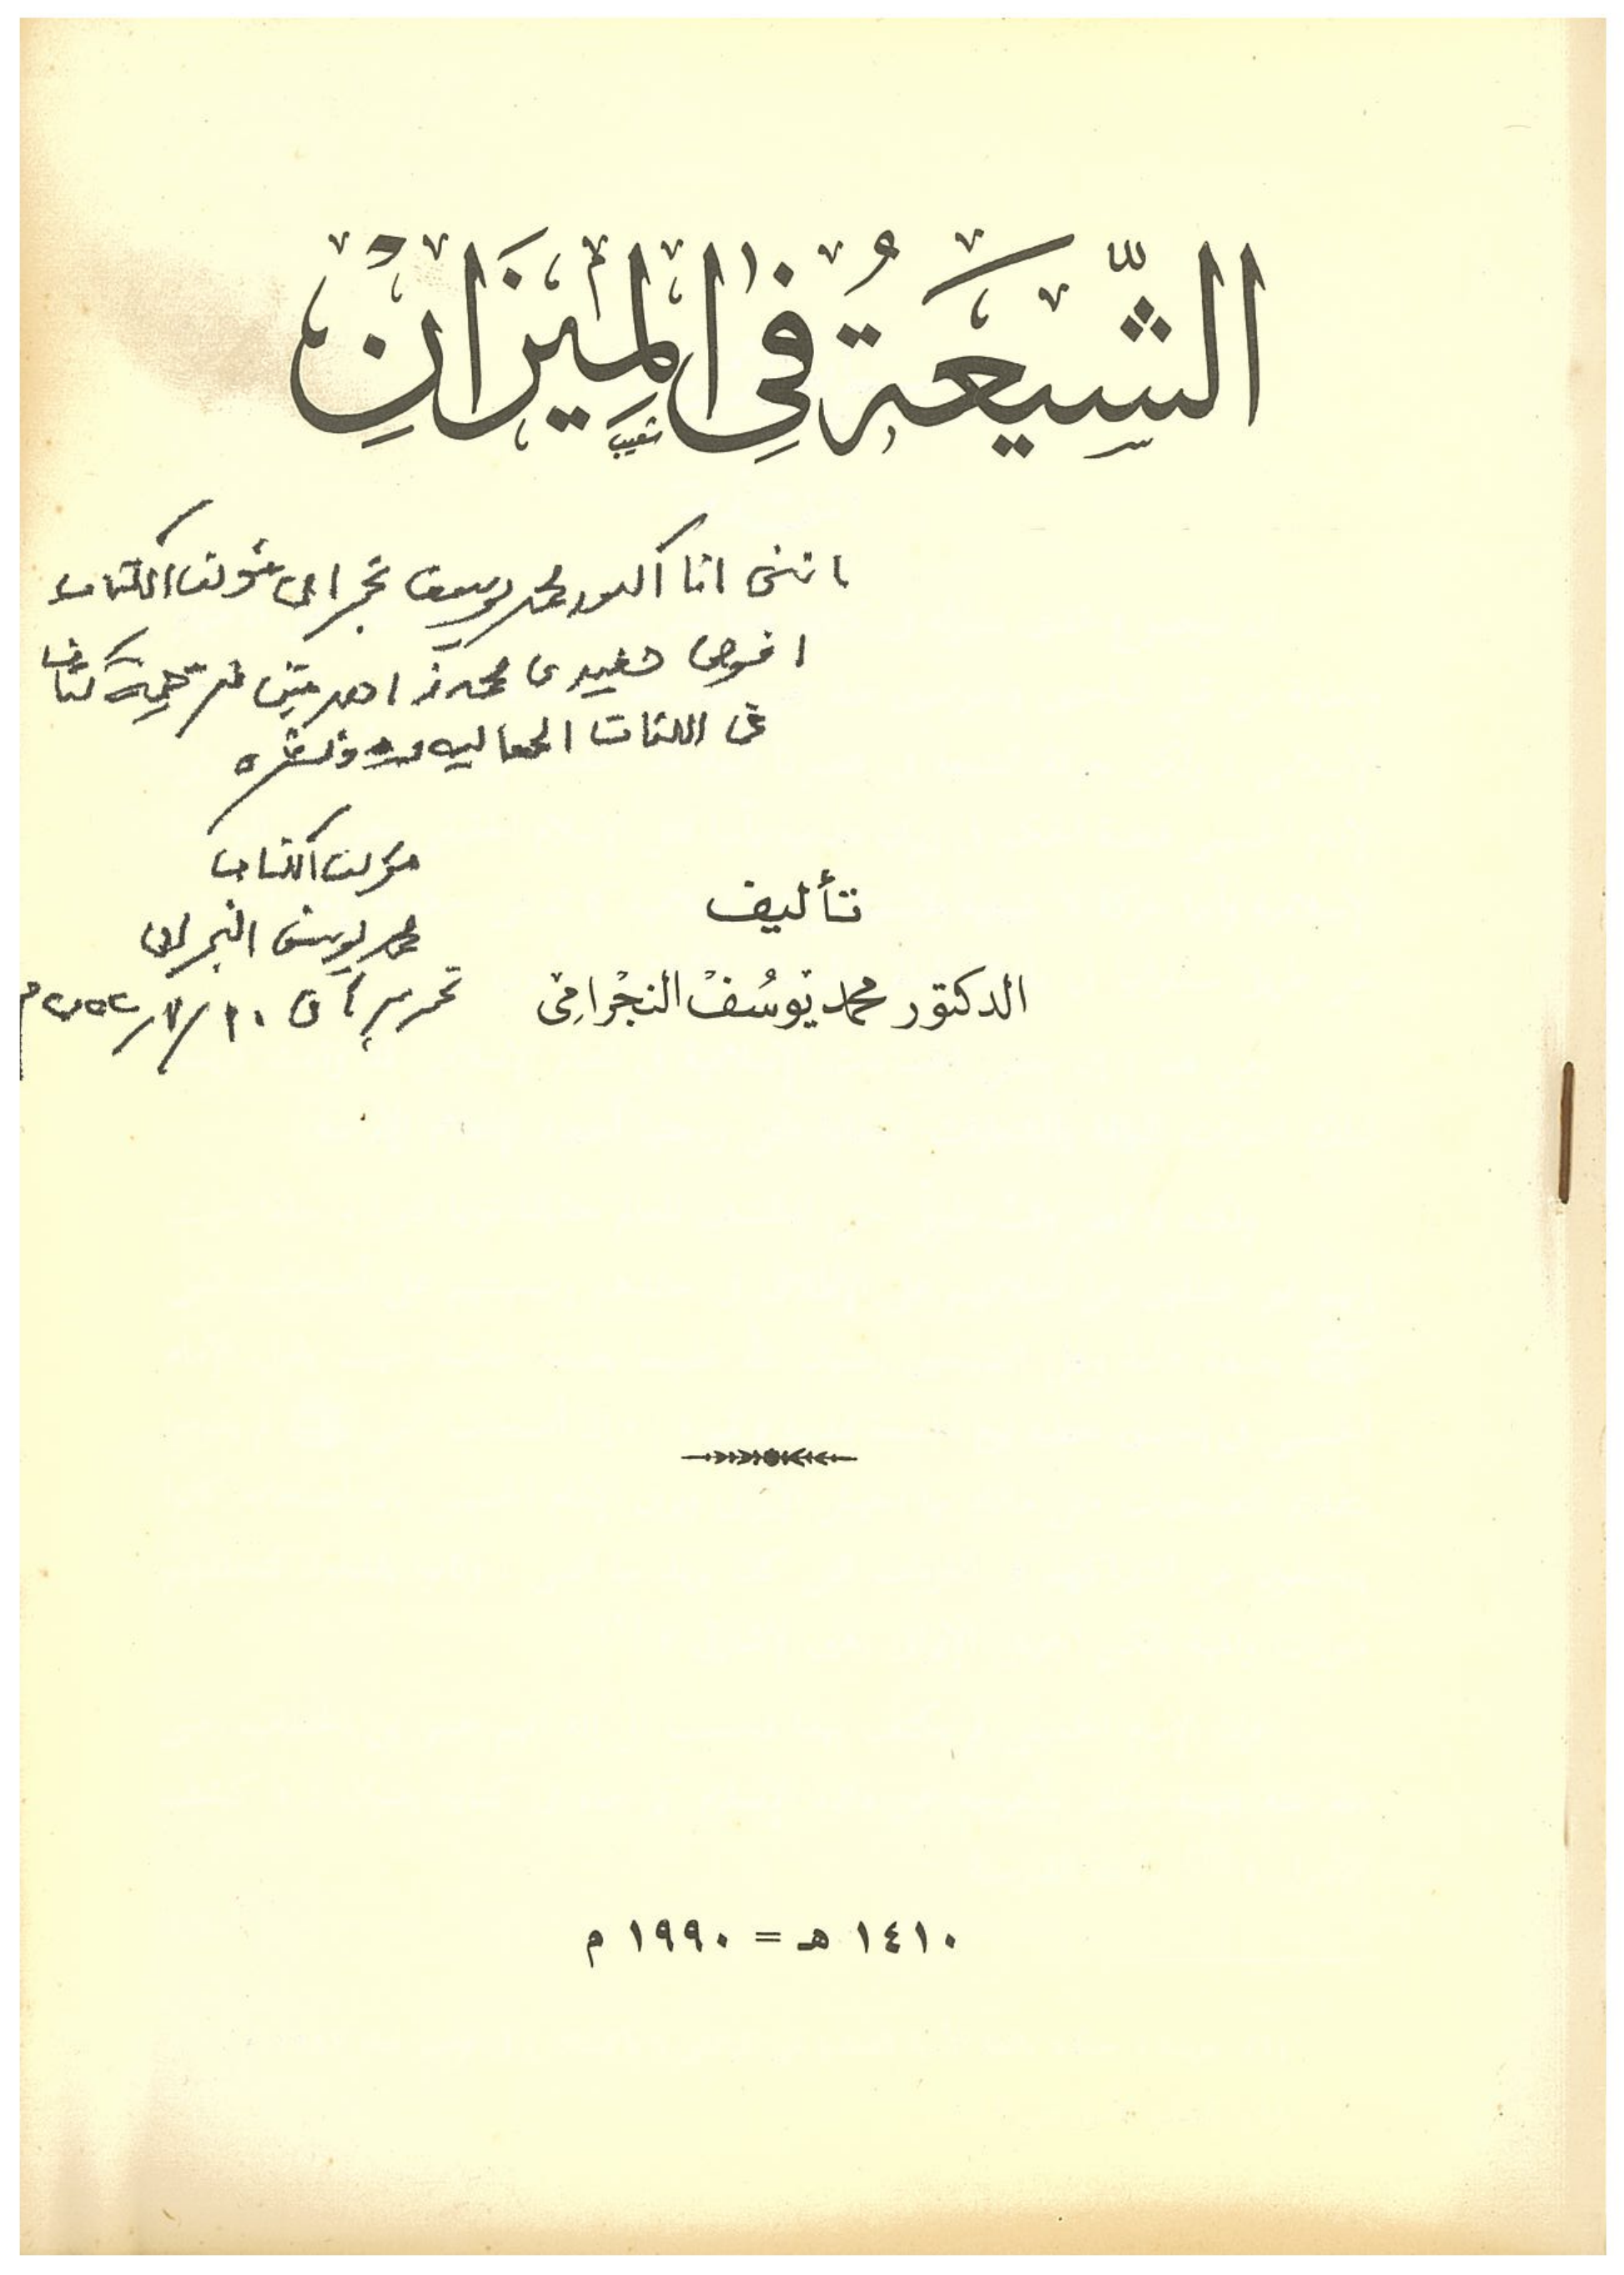 الشِّيعَةُ فِي المِيزَانِ
شعيب
انني انا الدكتور محمد يوسف نجرامي مؤلف الكتاب
افوض حفيدي محمد متين ترجمة كتاب
في اللغات العالمية ونشره
مؤلف الكتاب
محمد يوسف النجرامي
تحرير في ١٠
تأليف
الدكتور محمد يوسُفْ النجْرامِى
١٤١٠ هـ = ١٩٩٠ م